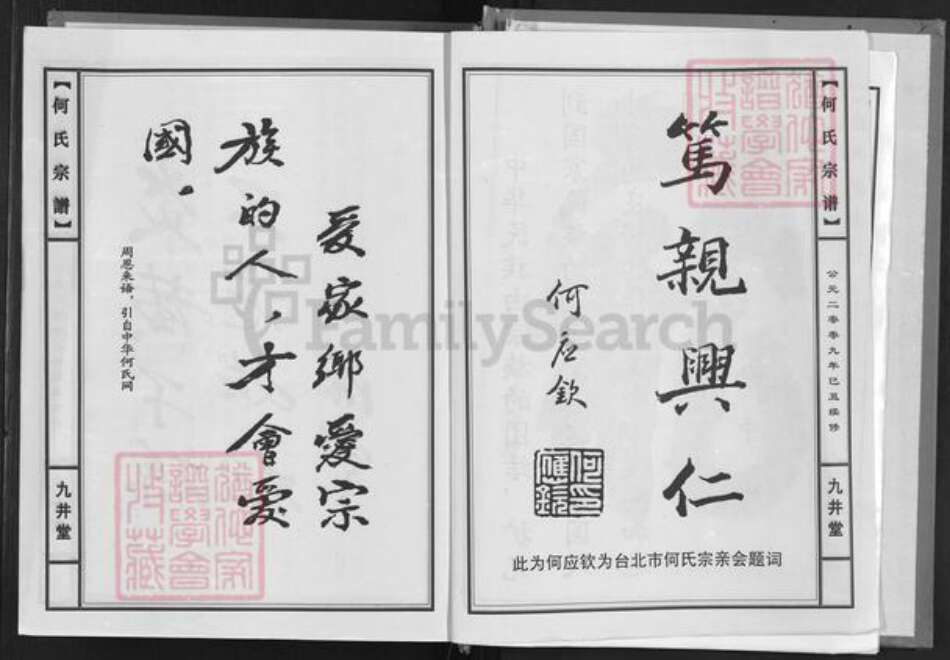 【何氏宗谱】
公元二零零九年己丑续修
九井堂
篤親興仁
何应欽
何应欽印
此为何应钦为台北市何氏宗亲会题词
爱家鄉愛宗
族的人，才會愛
國。
周恩来语，引自中华何氏网
【何氏宗譜】
九井堂
FamilySearch